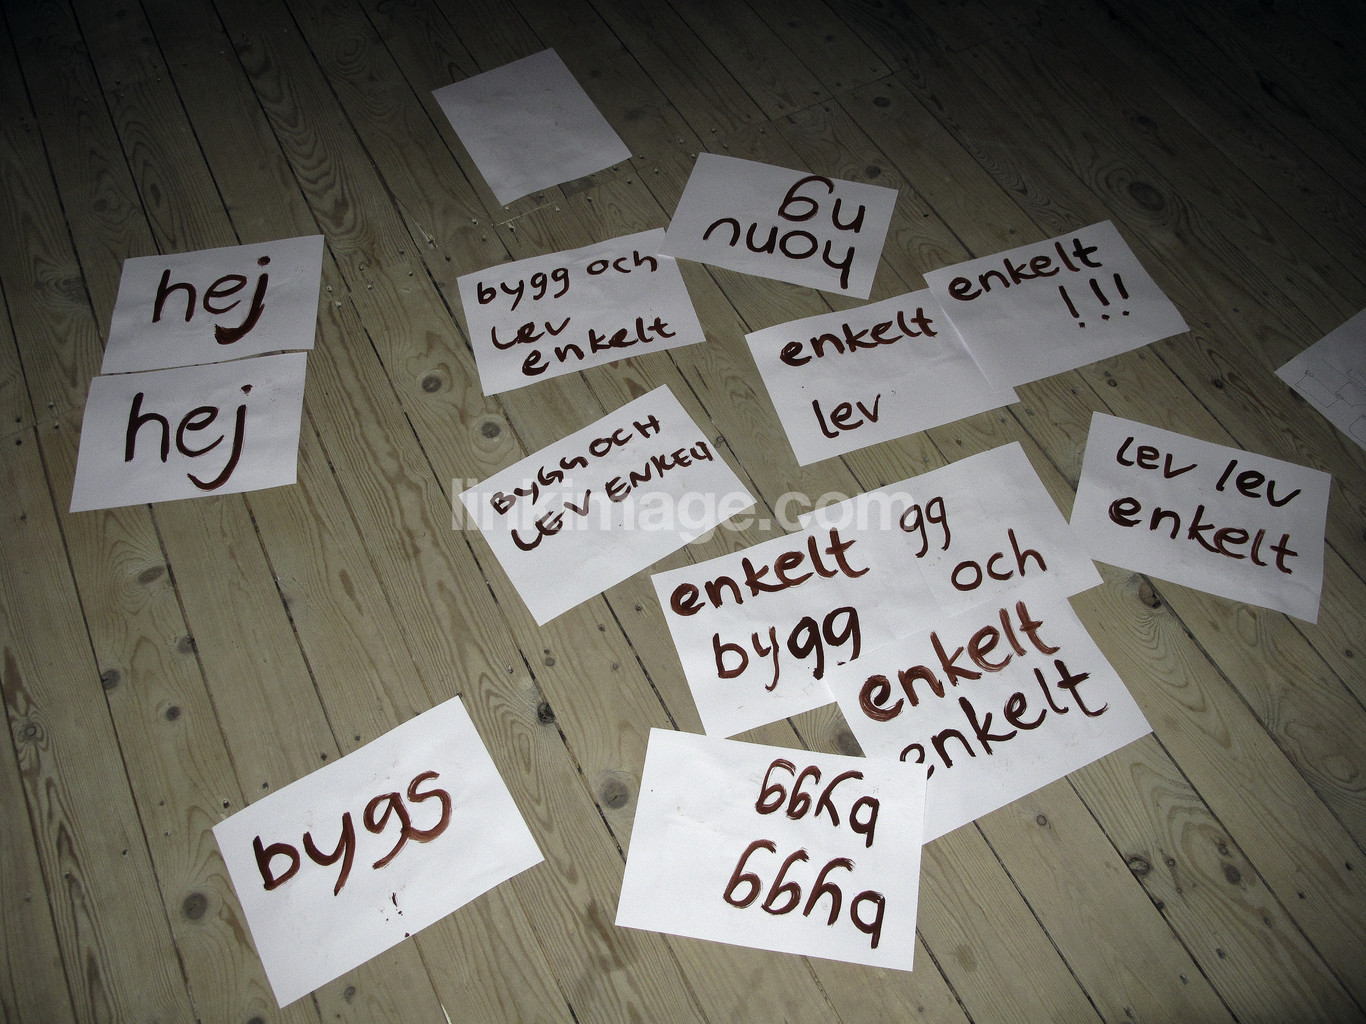 hej
hej
bygg och
lev
enkelt
ng
honu
enkelt
!!!
enkelt
lev
BYGG OCH
LEV ENKELT
lev lev
enkelt
gg
och
enkelt
bygg
enkelt
enkelt
bygg
bygg
bygs
linkimage.com